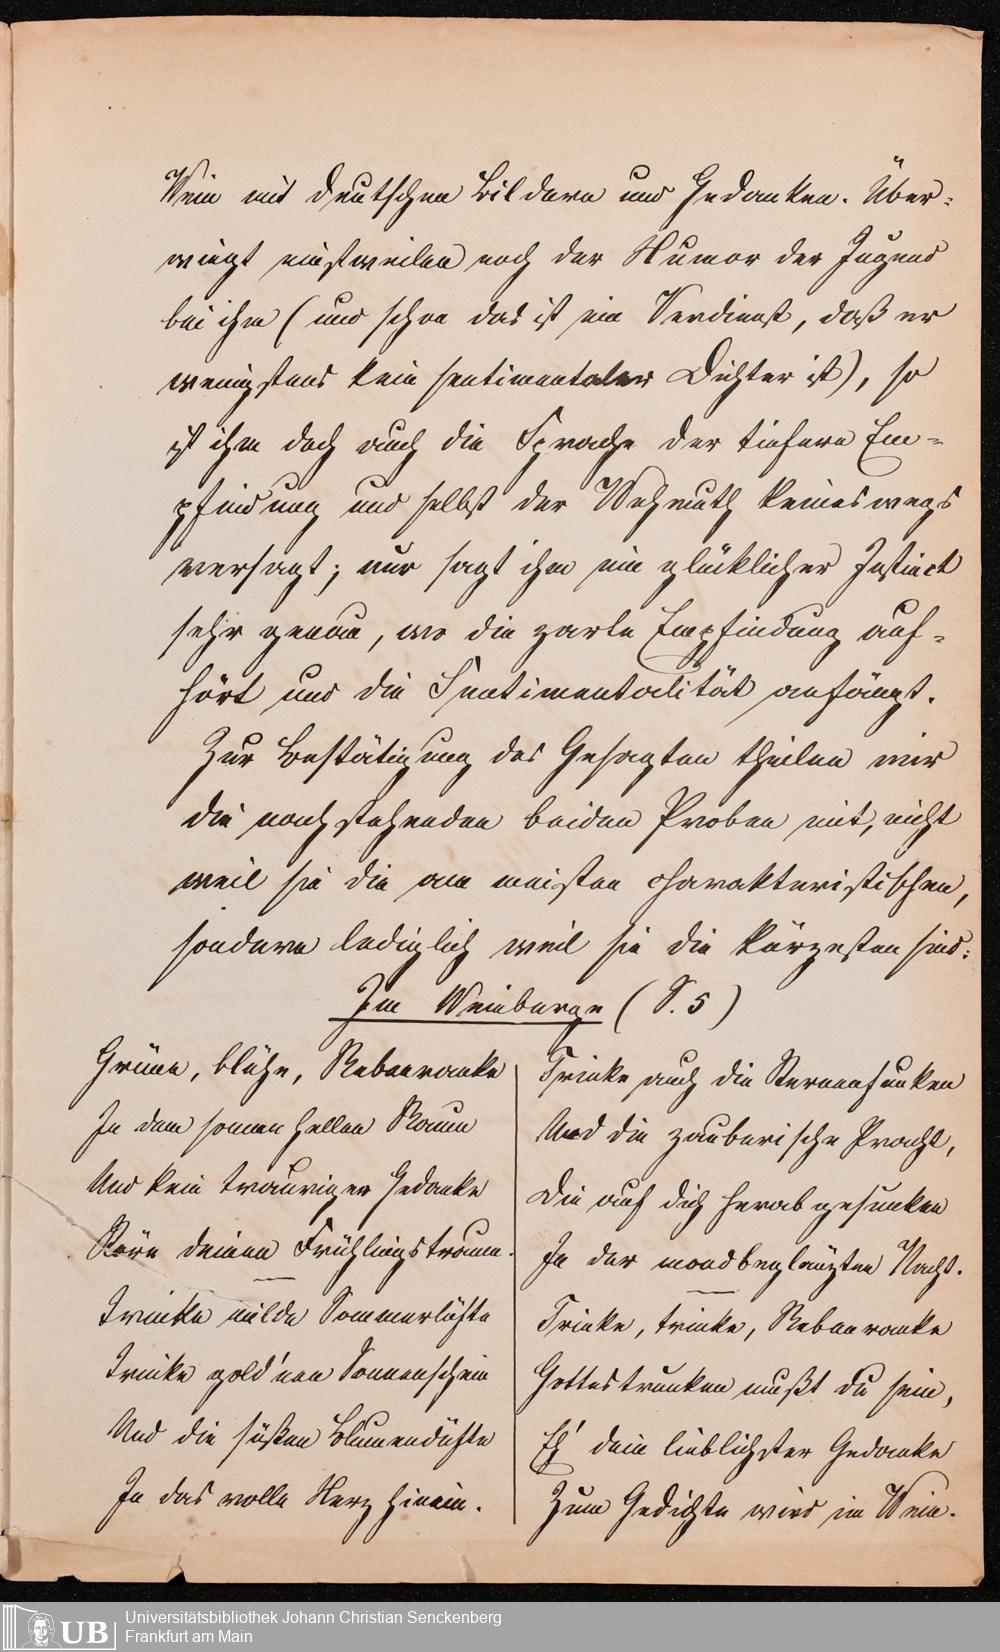 Wein mit deutschen Bildern und Gedanken. Über-
wiegt einstweilen noch der Humor der Jugend
bei ihm (und schon das ist ein Verdienst, daß er
wenigstens kein sentimentaler Dichter ist), so
ist ihm doch auch die Sprache der tiefern Em-
pfindung und selbst der Wehmuth keineswegs
versagt; nur sagt ihm ein glücklicher Instinct
sehr genau, wo die zarte Empfindung auf-
hört und die Sentimentalität anfängt.
Zur Bestätigung des Gesagten theilen wir
die nachstehenden beiden Proben mit, nicht
weil sie die am meisten charakteristischen,
sondern lediglich weil sie die kürzesten sind:
Im Weinberge (S. 5)
Grüne, blühe, Rebenranke
In dem sonnenhellen Raum
Und kein trauriger Gedanke
Störe deinen Frühlingstraum.
Trinke milde Sommerlüfte
Trinke gold'nen Sonnenschein
Und die süßen Blumendüfte
In das volle Herz hinein.
Trinke auch die Sternenfunken
Und die zauberische Pracht,
Die auf dich herabgesunken
In der mondbeglänzten Nacht.
Trinke, trinke, Rebenranke
Gottestrunken mußt du sein,
Eh' dein lieblichster Gedanke
Zum Gedichte wird im Wein.
UB
Universitätsbibliothek Johann Christian Senckenberg
Frankfurt am Main